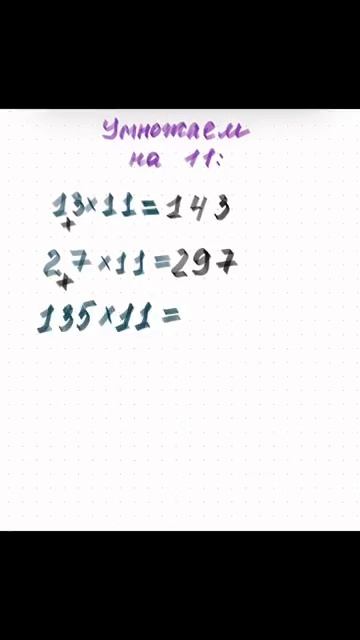 Умножаем
на 11:
13×11=143
+
27×11=297
+
135×11=